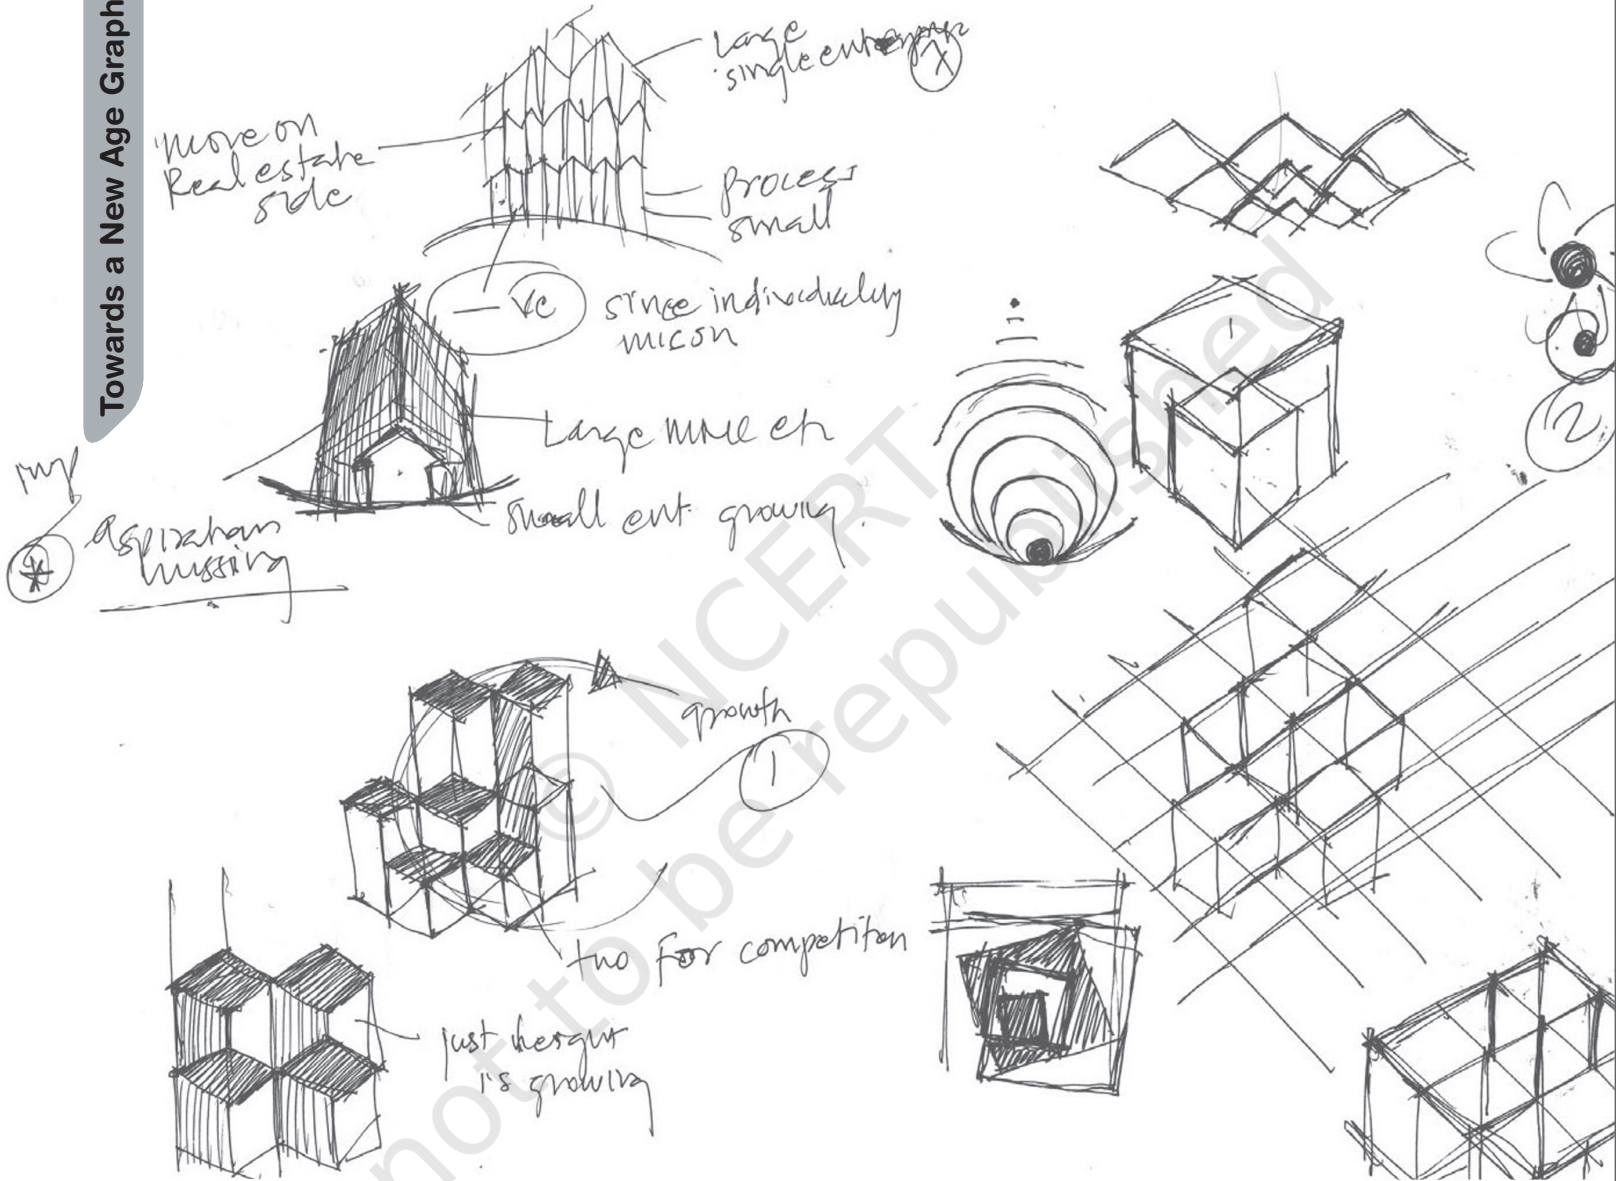 Towards a New Age Graph
Large
single
X
move on
Real estate
side
Process
small
– ve
since individually
micon
Large
small ent. growing.
imp
*
aspiration
missing
growth
1
two for competition
just height
is growing
1
2
© NCERT
not to be republished